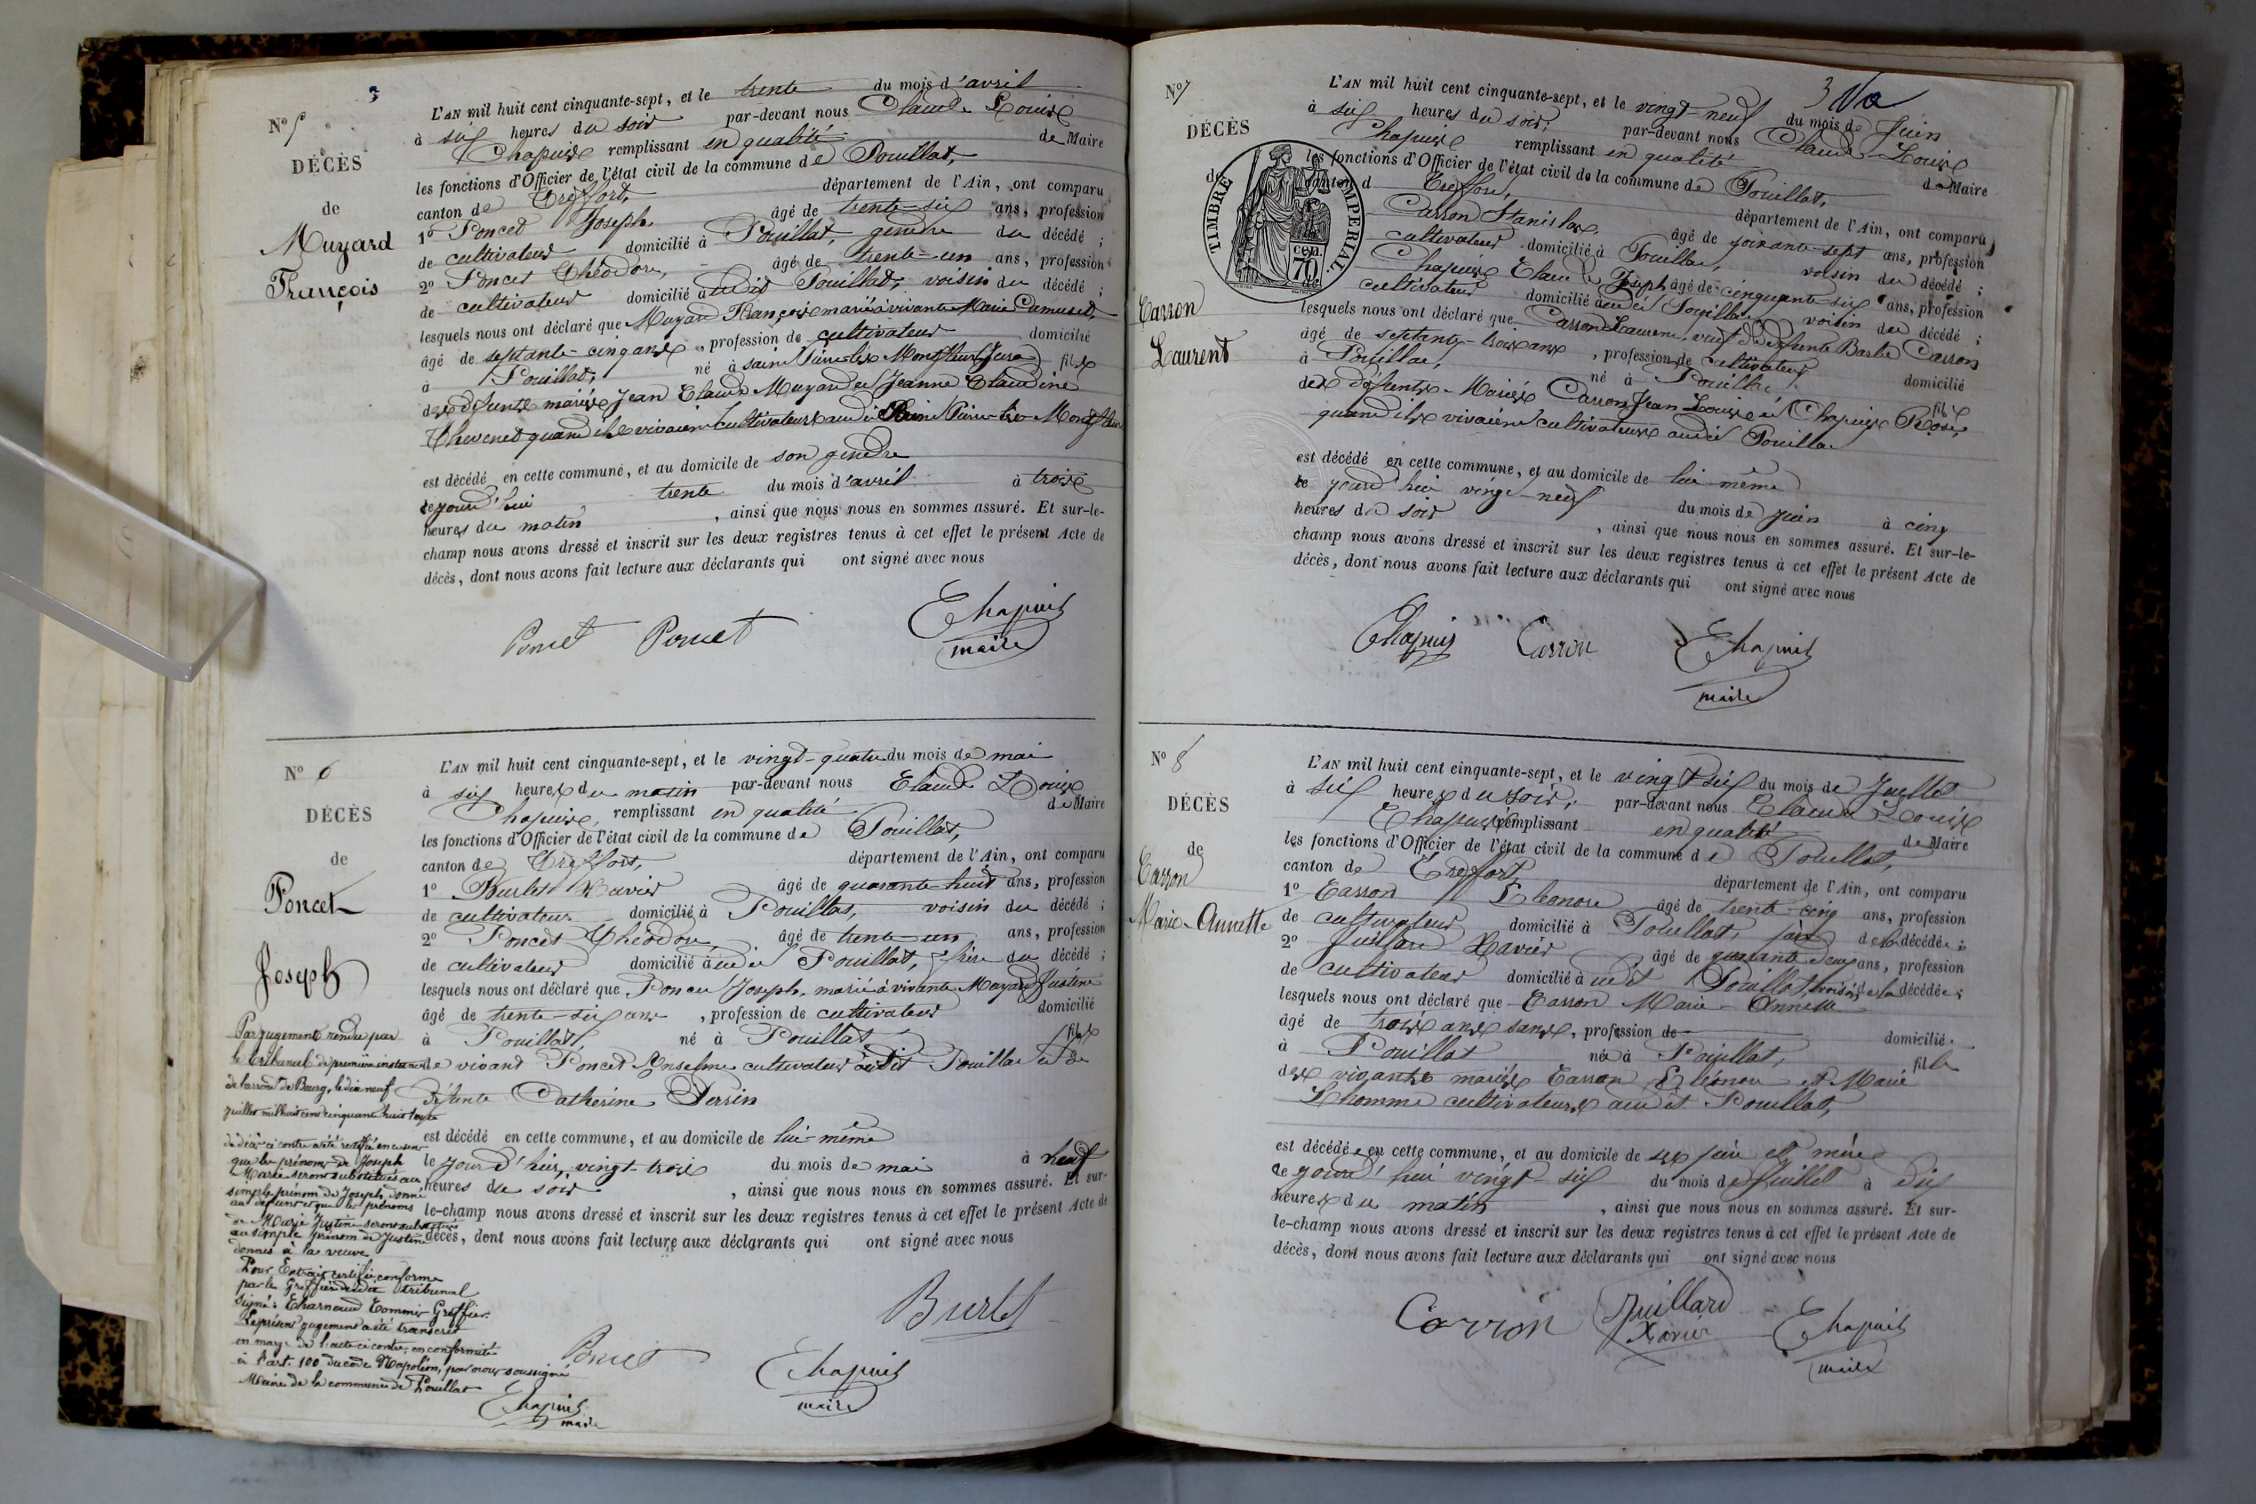 3
Nº 5
DÉCÈS
de
Muyard
François
L'AN mil huit cent cinquante-sept, et le trente du mois d'avril
à six heures du soir par-devant nous Claude Louis
Chapuis remplissant en qualité de Maire
les fonctions d'Officier de l'état civil de la commune de Pouillat,
canton de Treffort, département de l'Ain, ont comparu
1º Poncet Joseph âgé de trente-six ans, profession
de cultivateur domicilié à Pouillat, gendre du décédé ;
2º Poncet Théodore, âgé de trente-un ans, profession
de cultivateur domicilié audit Pouillat, voisin du décédé ;
lesquels nous ont déclaré que Muyard François marié à vivante Marie Camuset,
âgé de septante-cinq ans, profession de cultivateur domicilié
à Pouillat, né à Montfleur (Jura) fils
des défunts mariés Jean Claude Muyard et Jeanne Claudine
Thevenet quand ils vivaient cultivateurs audit
est décédé en cette commune, et au domicile de son gendre
ce jourd'hui trente du mois d'avril à trois
heures du matin, ainsi que nous nous en sommes assuré. Et sur-le-
champ nous avons dressé et inscrit sur les deux registres tenus à cet effet le présent Acte de
décès, dont nous avons fait lecture aux déclarants qui ont signé avec nous
Poncet Poncet Chapuis
maire
Nº 6
DÉCÈS
de
Poncet
Joseph
L'AN mil huit cent cinquante-sept, et le vingt-quatre du mois de mai
à six heures du matin par-devant nous Claude Louis
Chapuis, remplissant en qualité de Maire
les fonctions d'Officier de l'état civil de la commune de Pouillat,
canton de Treffort, département de l'Ain, ont comparu
1º Burlet Xavier âgé de quarante-huit ans, profession
de cultivateur domicilié à Pouillat, voisin du décédé ;
2º Poncet Théodore, âgé de trente-un ans, profession
de cultivateur domicilié audit Pouillat, frère du décédé ;
lesquels nous ont déclaré que Poncet Joseph, marié à vivante Muyard Justine
âgé de trente-six ans, profession de cultivateur domicilié
à Pouillat, né à Pouillat, fils
de vivant Poncet Anselme cultivateur audit Pouillat et de
défunte Catherine Perrin
est décédé en cette commune, et au domicile de lui-même
le jour d'hier, vingt-trois du mois de mai à neuf
heures du soir, ainsi que nous nous en sommes assuré. Et sur-
le-champ nous avons dressé et inscrit sur les deux registres tenus à cet effet le présent Acte de
décès, dont nous avons fait lecture aux déclarants qui ont signé avec nous
Burlet
Poncet Chapuis
maire
Par jugement rendu par
le tribunal de première instance
de l'arrondt de Bourg, le dix neuf
juillet mil huit cent cinquante huit
de décès ci contre a été rectifié en ce sens
que les prénoms de Joseph
Marie seront substitués au
simple prénom de Joseph donné
au défunt et que les prénoms
de Marie Justine seront substitués
au simple prénom de Justine
donné à la veuve
Pour Extrait certifié conforme
par le Greffier dudit tribunal
signé : Charnaud Commis Greffier
Le présent jugement a été transcrit
en marge de l'acte ci contre, en conformité
à l'art. 100 du code Napoléon, par nous soussigné
Maire de la commune de Pouillat
Chapuis
maire
3
Nº 7
DÉCÈS
de
Carron
Laurent
TIMBRE IMPERIAL.
70 cen.
L'AN mil huit cent cinquante-sept, et le vingt-neuf du mois de Juin
à six heures du soir, par-devant nous Claude Louis
Chapuis remplissant en qualité de Maire
les fonctions d'Officier de l'état civil de la commune de Pouillat,
canton de Treffort, département de l'Ain, ont comparu
Carron Stanislas, âgé de soixante-sept ans, profession
cultivateur domicilié à Pouillat, voisin du décédé ;
Chapuis Claude Joseph âgé de cinquante six ans, profession
cultivateur domicilié audit Pouillat voisin du décédé ;
lesquels nous ont déclaré que Carron Laurent, veuf de défunte Barbe Carron
âgé de septante-trois ans, profession de cultivateur domicilié
à Pouillat, né à Pouillat, fils
des défunts Mariés Carron Jean Louis et Chapuis Rose,
quand ils vivaient cultivateurs audit Pouillat
est décédé en cette commune, et au domicile de lui-même
ce jourd'hui vingt-neuf du mois de juin à cinq
heures du soir, ainsi que nous nous en sommes assuré. Et sur-le-
champ nous avons dressé et inscrit sur les deux registres tenus à cet effet le présent Acte de
décès, dont nous avons fait lecture aux déclarants qui ont signé avec nous
Chapuis Carron Chapuis
maire
Nº 8
DÉCÈS
de
Carron
Marie-Annette
L'AN mil huit cent cinquante-sept, et le vingt six du mois de Juillet
à six heures du soir, par-devant nous Claude Louis
Chapuis remplissant en qualité de Maire
les fonctions d'Officier de l'état civil de la commune de Pouillat,
canton de Treffort, département de l'Ain, ont comparu
1º Carron Eléonore âgé de trente-cinq ans, profession
de cultivateur domicilié à Pouillat, père de la décédée ;
2º Juillard Xavier âgé de quarante deux ans, profession
de cultivateur domicilié audit Pouillat, voisin de la décédée ;
lesquels nous ont déclaré que Carron Marie-Annette
âgé de trois ans sans, profession de domicilié
à Pouillat née à Pouillat, fille
des vivants mariés Carron Eléonore et Marie
Lhomme cultivateurs audit Pouillat,
est décédée en cette commune, et au domicile de ses père et mère
ce jourd'hui vingt-six du mois de Juillet à dix
heures du matin, ainsi que nous nous en sommes assuré. Et sur-
le-champ nous avons dressé et inscrit sur les deux registres tenus à cet effet le présent Acte de
décès, dont nous avons fait lecture aux déclarants qui ont signé avec nous
Carron Juillard Xavier Chapuis
maire